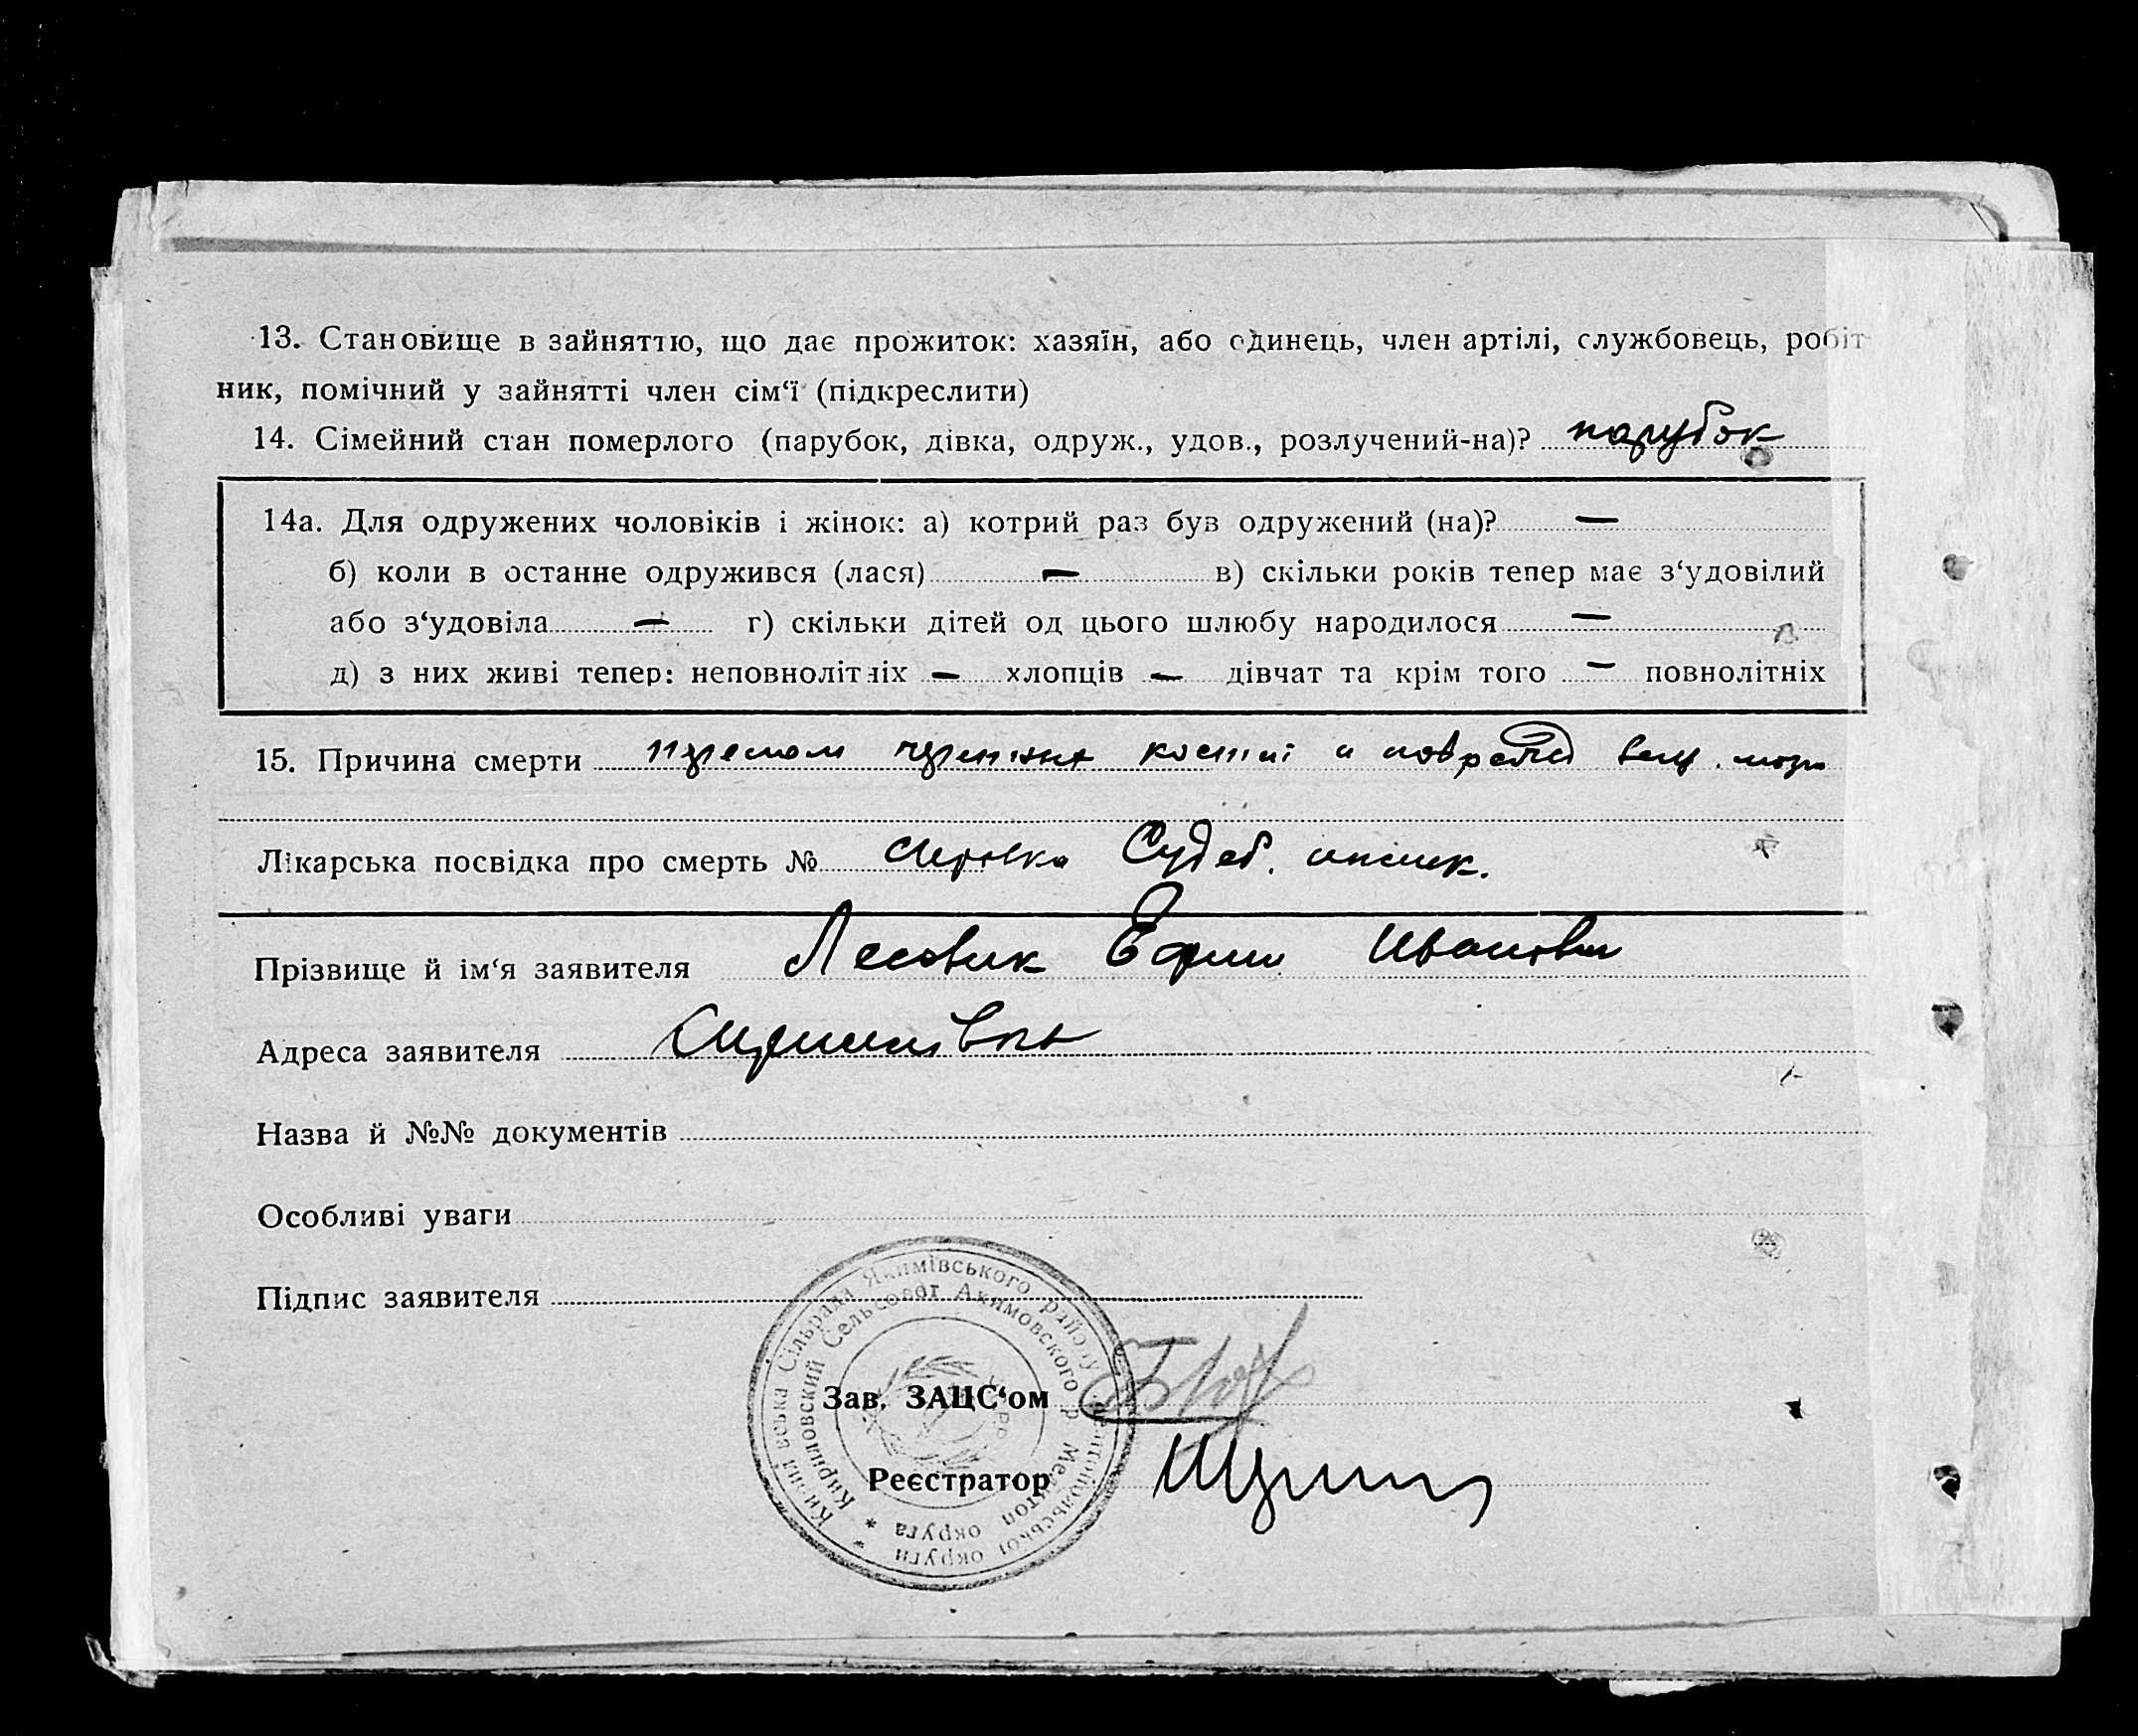 13. Становище в зайняттю, що дає прожиток: хазяїн, або одинець, член артілі, службовець, робіт
ник, помічний у зайнятті член сім‘ї (підкреслити)
14. Сімейний стан померлого (парубок, дівка, одруж., удов., розлучений-на)? парубок
14а. Для одружених чоловіків і жінок: а) котрий раз був одружений (на)? —
б) коли в останне одружився (лася) — в) скільки років тепер має з‘удовілий
або з‘удовіла — г) скільки дітей од цього шлюбу народилося —
д) з них живі тепер: неповнолітніх — хлопців — дівчат та крім того — повнолітніх
15. Причина смерти костей и
Лікарська посвідка про смерть № справка Судеб.
Прізвище й ім‘я заявителя Лесовик Ефим Иванови
Адреса заявителя
Назва й №№ документів
Особливі уваги
Підпис заявителя
Зав. ЗАЦС‘ом
Реєстратор
Кирилівська Сільрада Якимівського району Мелітопільської округи *
Кирилловский Сельсовет Акимовского р Мелитоп округа *